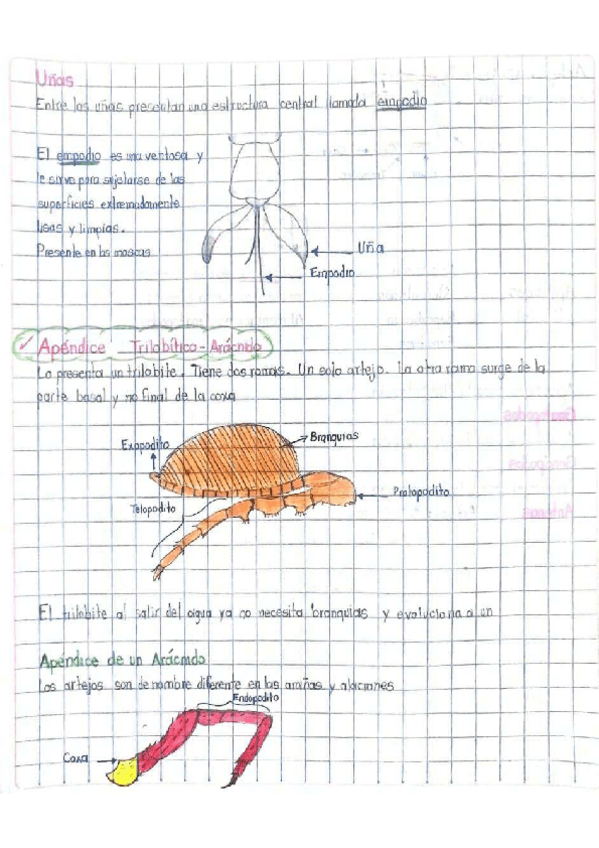 Uñas
Entre las uñas presentan una estructura central lamada empodio
El empodio es una ventosa y
le sirve para sujetarse de las
superficies extremadamente
lisas y limpias.
Presente en las moscas
Uña
Empodio
✓ Apéndice Trilobítico - Arácnido
Lo presenta un trilobite. Tiene dos ramas. Un solo artejo. La otra rama surge de la
parte basal y no final de la coxa
Exopodito
Branquias
Protopodito
Telopodito
El trilobite al salir del agua ya no necesita branquias y evoluciona a un
Apéndice de un Arácnido
Los artejos son de nombre diferente en las arañas y alacranes
Endopodito
Coxa